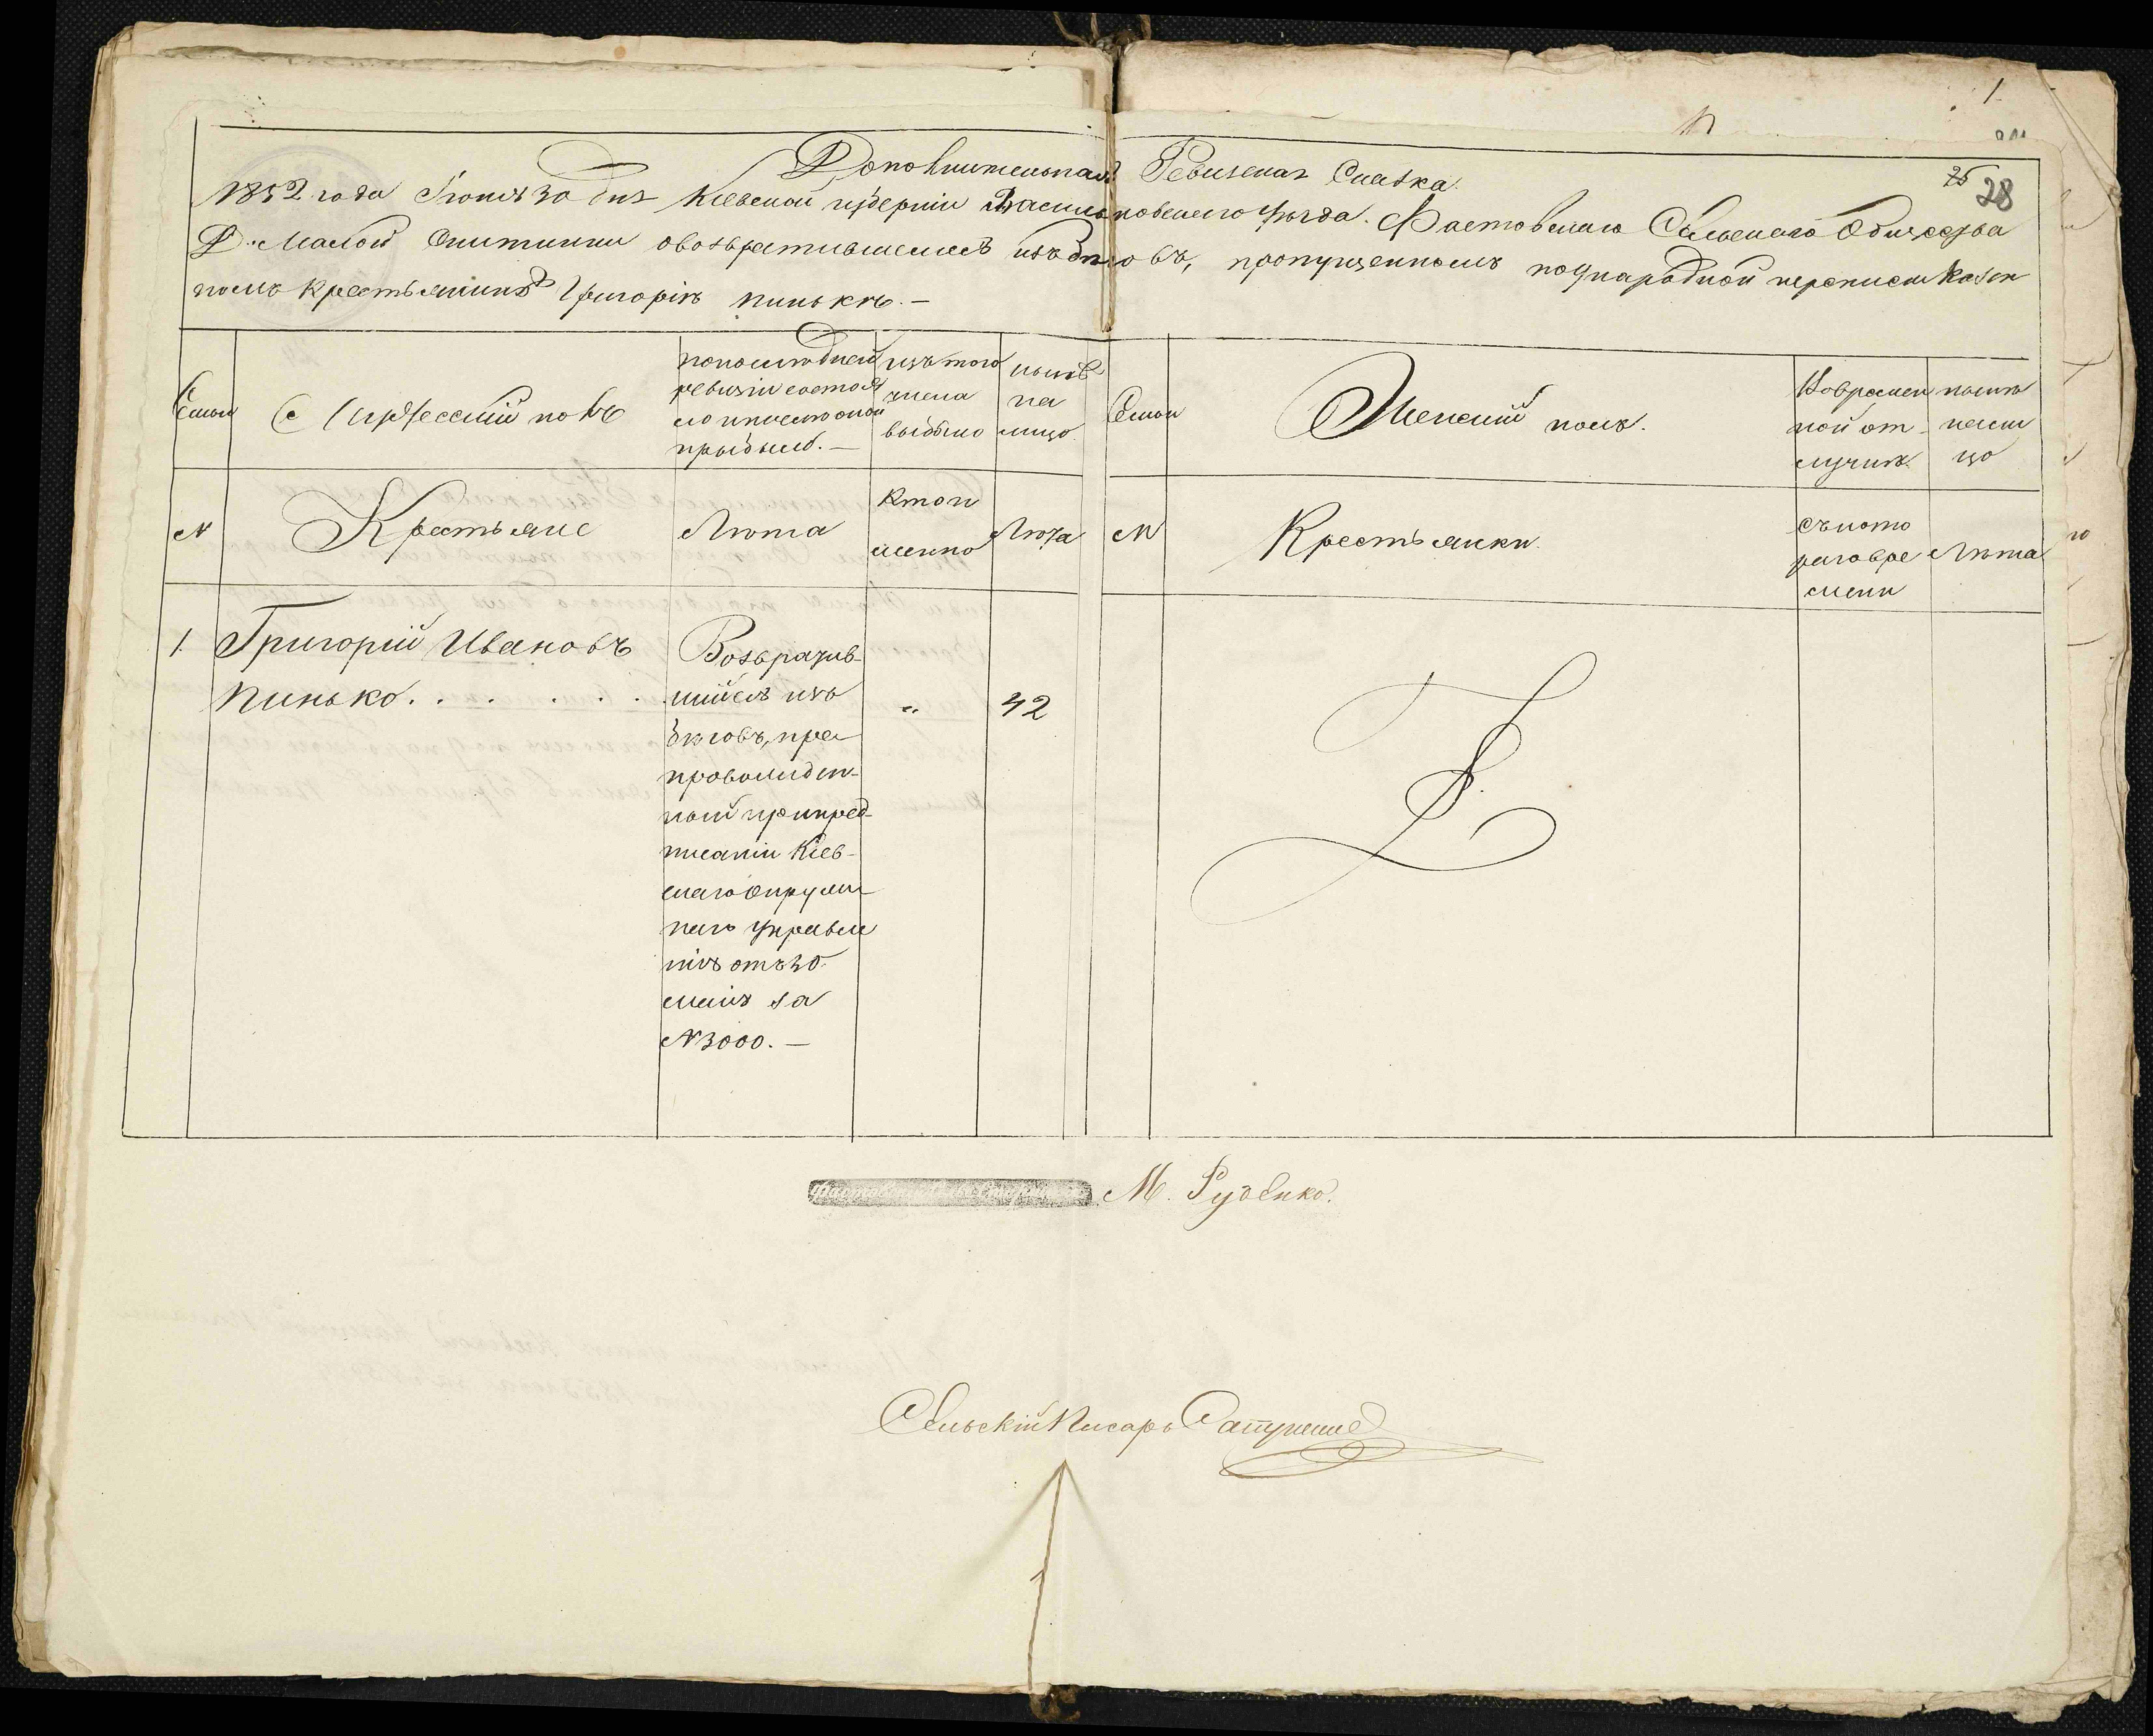 1
28
Дополнительная Ревизская Сказка.
1852 года Іюня 30 дня Кіевской губерніи Васильковскаго уѣзда. Фастовскаго Сельскаго Общества
Д. Малой Снитинки овозвратившемся изъ бѣговъ, пропущенномъ понародной переписи казен
номъ крестьянинѣ Григоріѣ Пинькѣ. —
Семьи
Мужескій полъ
попослѣдней
ревизіи состоя
ло и послѣ оной
прыбыло. —
изъ того
числа
выбыло
нынѣ
на
лицо
Семьи
Женскій полъ.
Вовремен
ной от
лучкѣ
нынѣ
на ли
цо
№
Крестьяне
Лѣта
Кто и
менно
Лѣта
№
Крестьянки
съ кото
раго вре
мени
Лѣта
1
Григорій Ивановъ
Возвратив
Пинько. . . . . . .
шійся изъ
"
42
бѣговъ, пре
провожден-
ный припред
писаніи Кіев-
скаго Окруж
наго управле
нія отъ 30
маія за
№ 3000. —
М. Руденко.
Сельскій Писарь